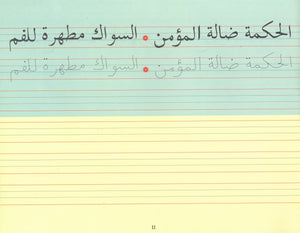 الحكمة ضالة المؤمن • السواك مطهرة للفم
الحكمة ضالة المؤمن • السواك مطهرة للفم
11